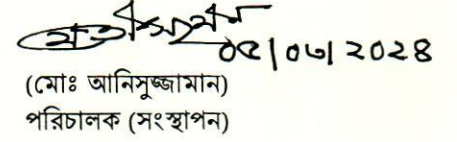 ০৫/০৩/২০২৪
(মোঃ আনিসুজ্জামান)
পরিচালক (সংস্থাপন)